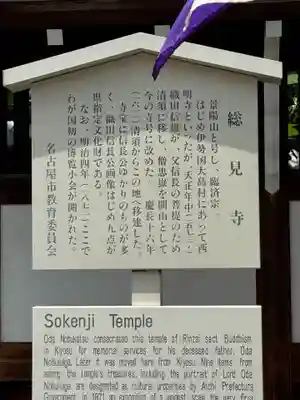 総見寺
景陽山と号し、臨済宗。
はじめ伊勢国大島村にあって西
明寺といったが、天正年中(一五七三〜
織田信雄が、父信長の菩提のため
清須に移し、僧忠嶽を開山として
今の寺号に改めた。慶長十六年
(一六一一)清須からこの地へ移建した。
寺宝に信長公ゆかりのものが多
く、織田信長公画像はじめ九点が
県指定文化財である。
なお、明治四年(一八七一)ここで
わが国初の博覧小会が開かれた。
名古屋市教育委員会
Sokenji Temple
Oda Nobukatsu consecrated this temple of Rinzai sect Buddhism
in Kiyosu for memorial services for his deceased father, Oda
Nobunaga. Later it was moved here from Kiyosu. Nine items from
among the temple's treasures, including the portrait of Lord Oda
Nobunaga are designated as cultural properties by Aichi Prefectural
Government. In 1871 an exposition of a modest scale, the very first